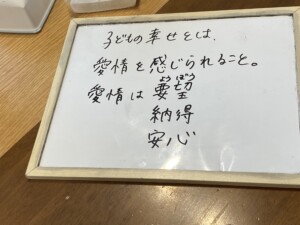 子どもの幸せとは、
愛情を感じられること。
ようぼう
愛情は要望
納得
安心